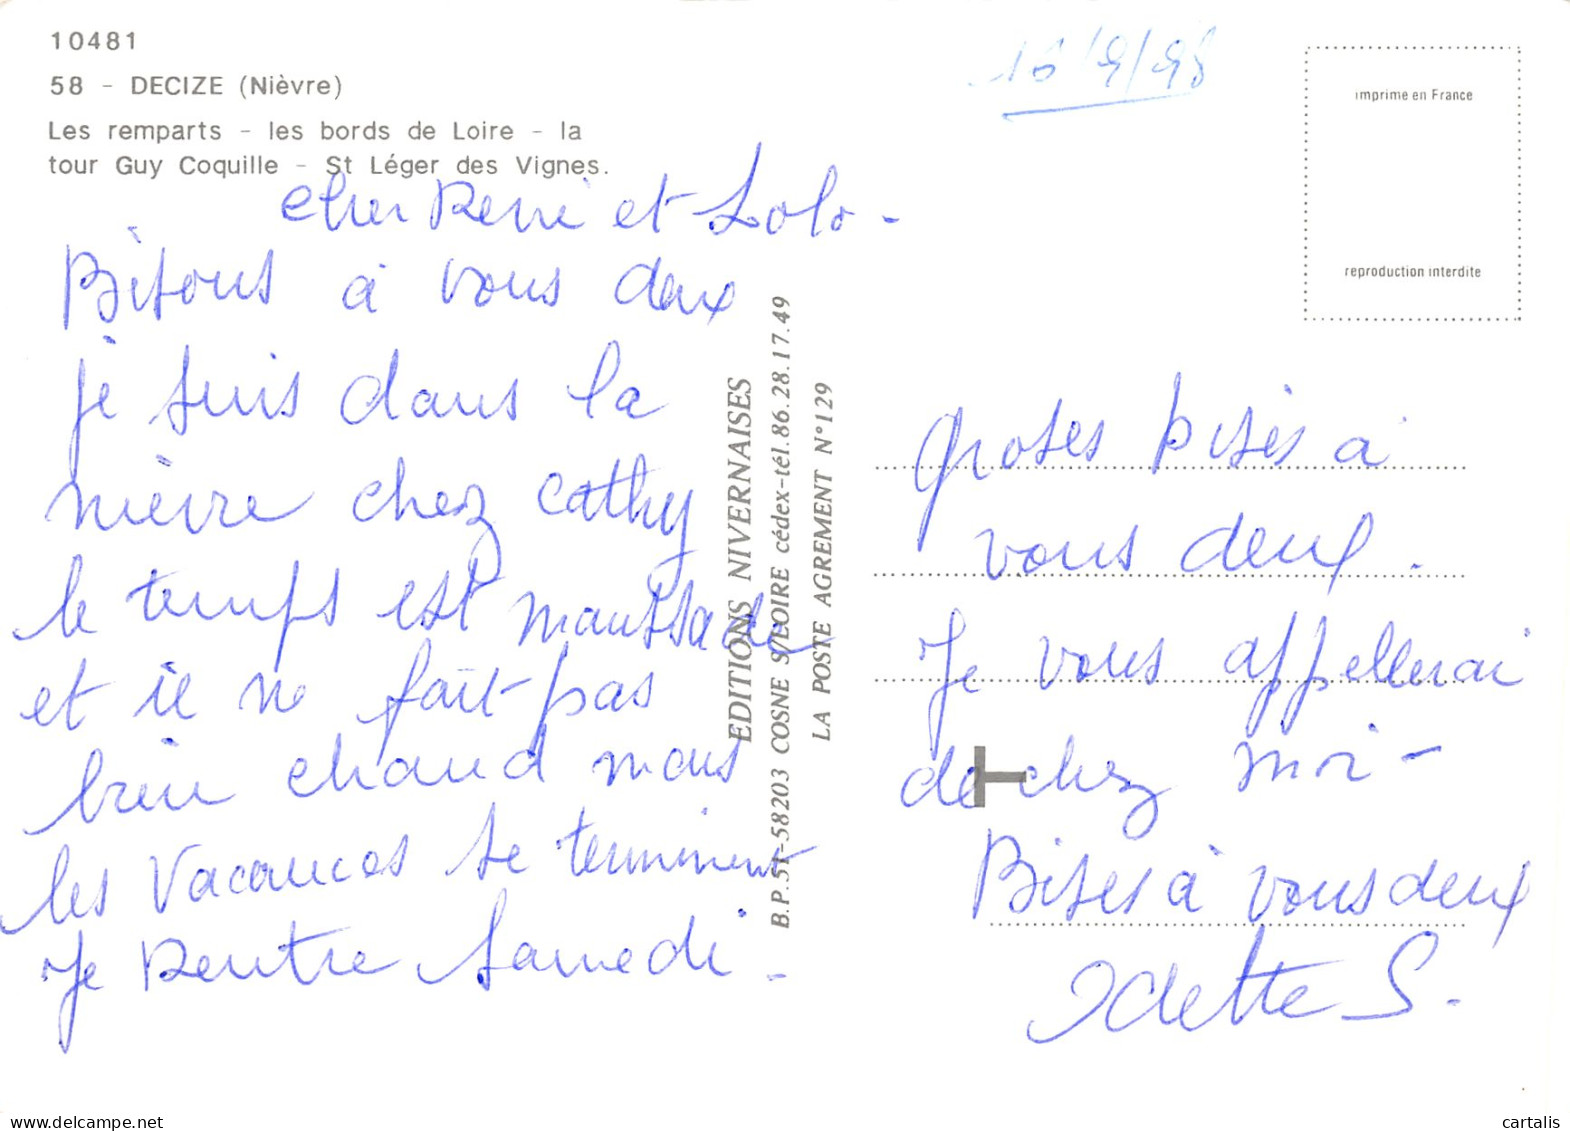 10481
58 - DECIZE (Nièvre)
Les remparts - les bords de Loire - la
tour Guy Coquille - St Léger des Vignes.
16/9/98
imprime en France
reproduction interdite
cher René et Lolo -
Bisous à vous deux
je suis dans la
nièvre chez cathy
le temps est maussade
et il ne fait pas
bien chaud mais
les vacances se terminent
Je rentre samedi -
EDITIONS NIVERNAISES
B.P. 51-58203 COSNE S/LOIRE cédex-tél.86.28.17.49
LA POSTE AGREMENT N°129
groses bises à
vous deux.
Je vous appellerai
de chez moi -
Bises à vous deux
Odette S.
cartalis